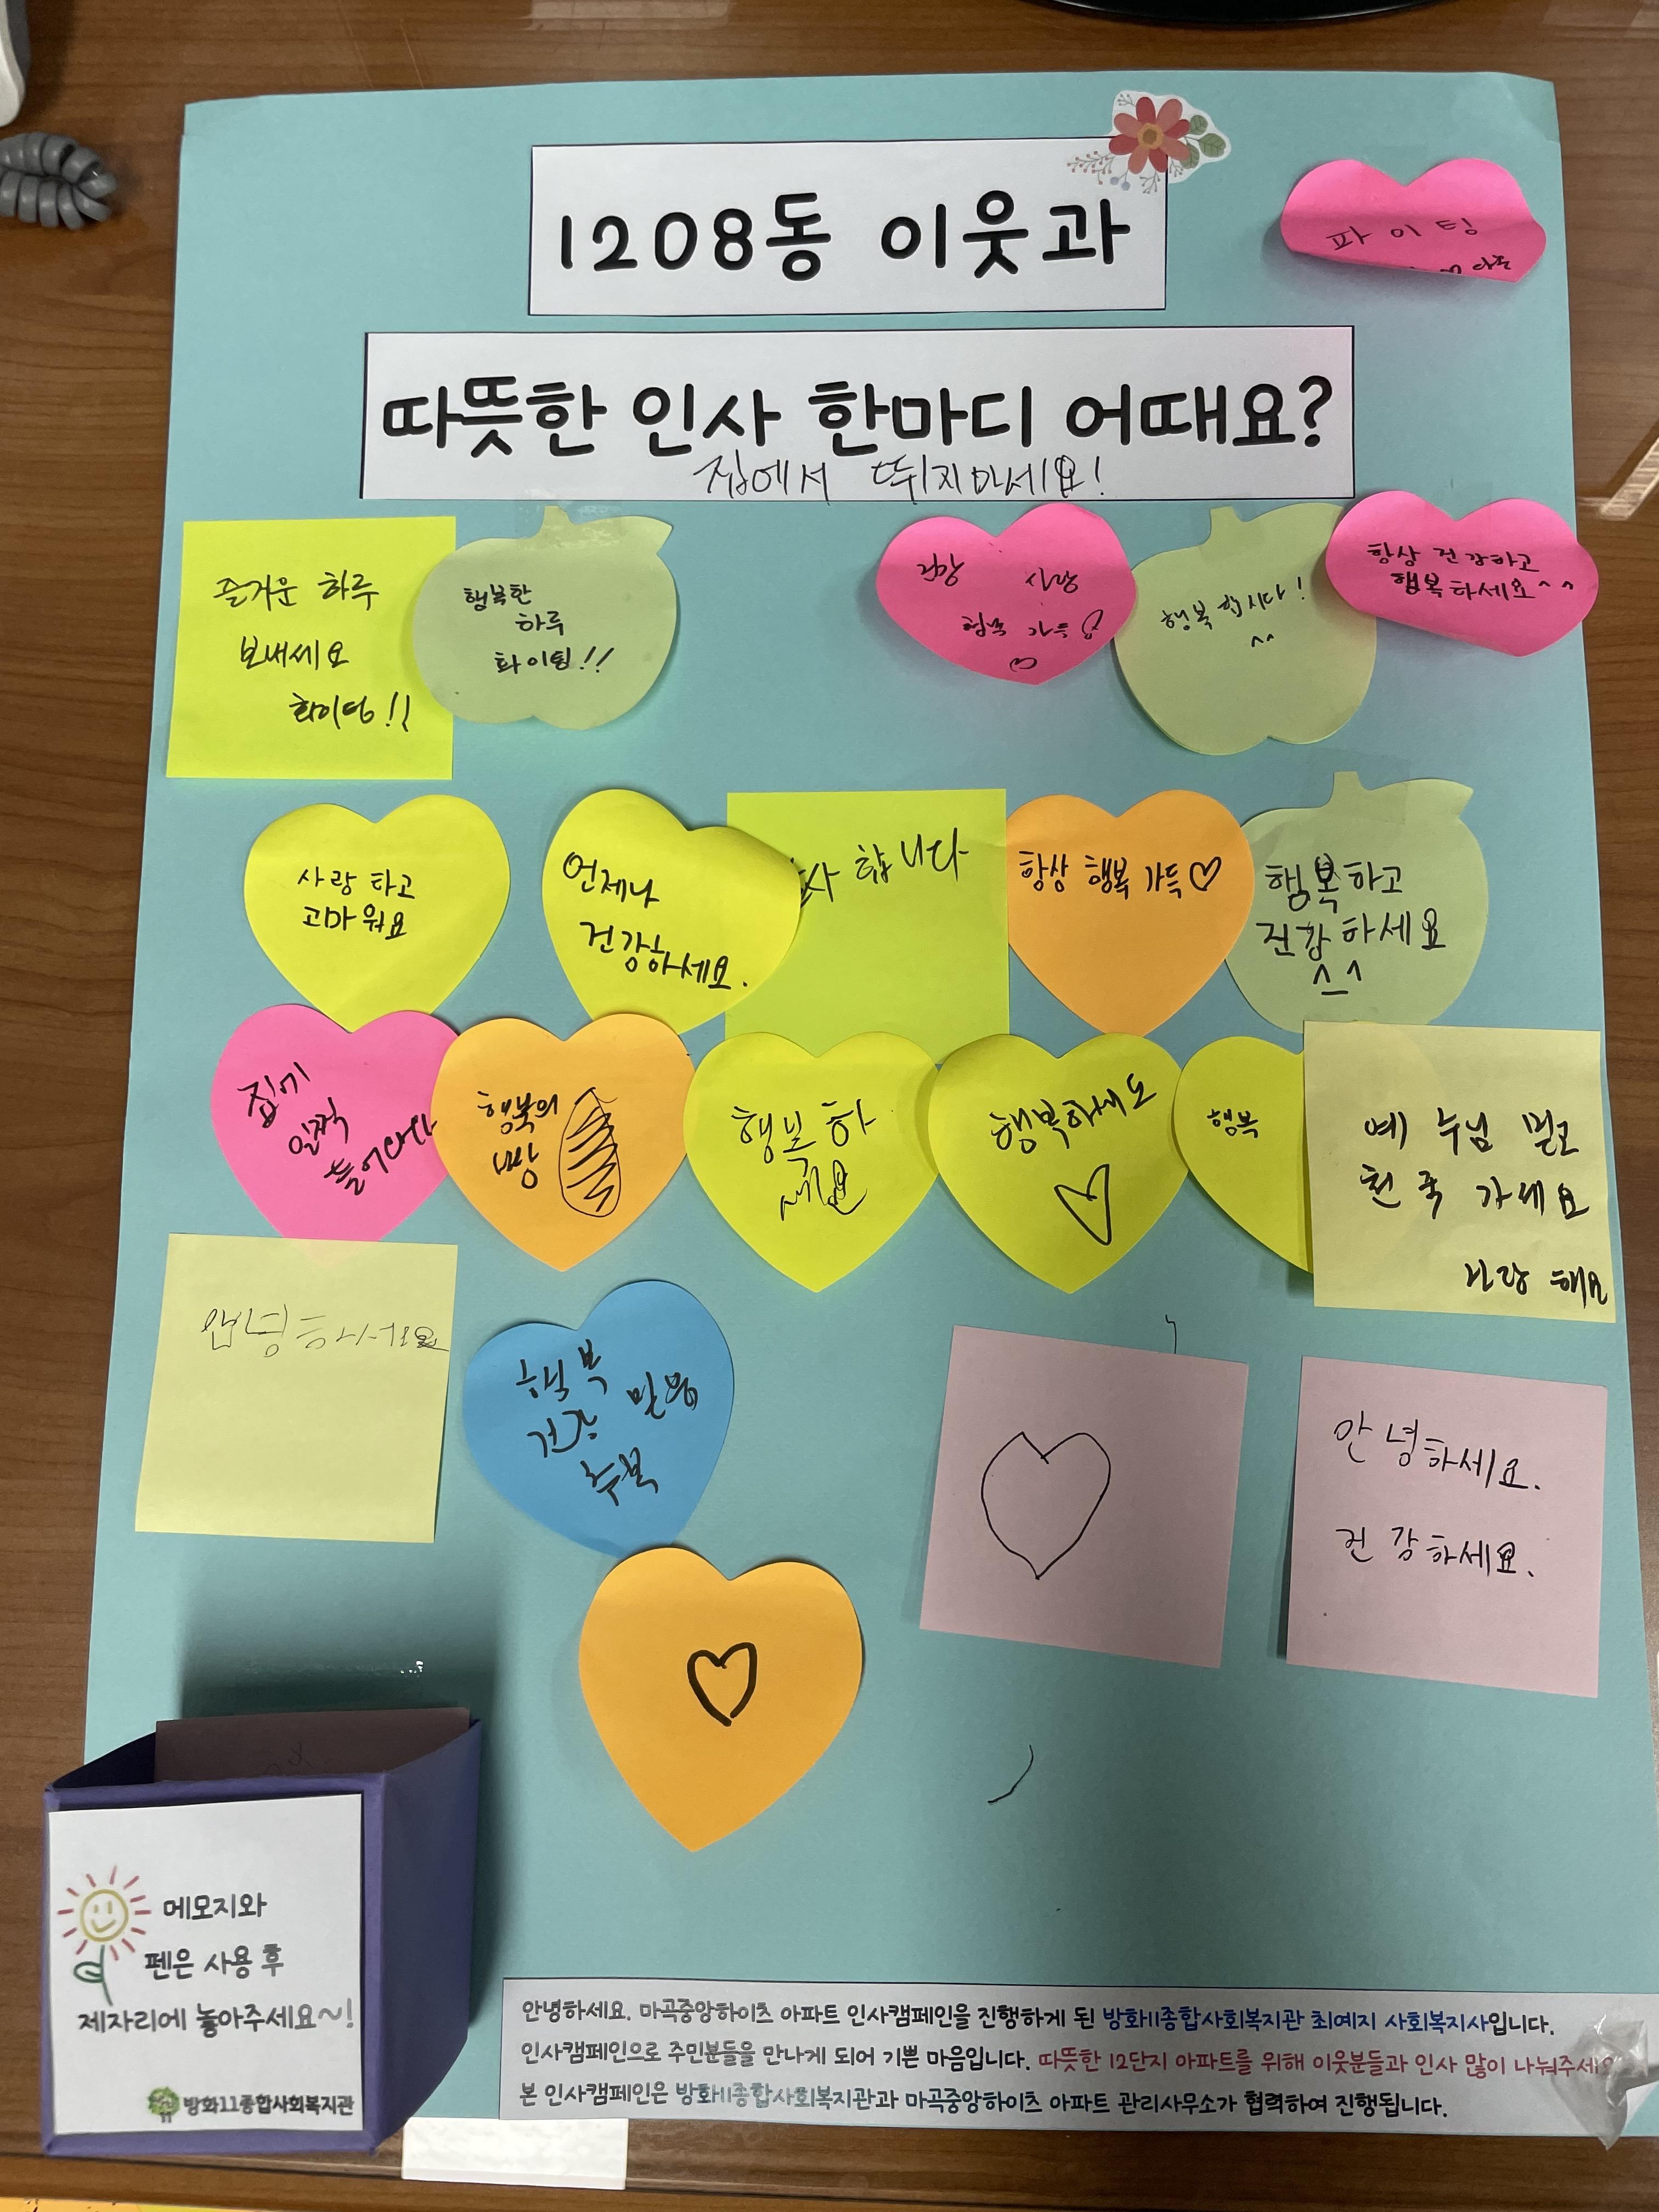 1208동 이웃과
파이팅
따뜻한 인사 한마디 어때요?
집에서 뛰지마세요!
즐거운 하루
보내세요
화이팅!!
행복한
하루
화이팅!!
건강 사랑
행복 가득
행복 합시다!
^^
항상 건강하고
행복하세요^^
사랑하고
고마워요
언제나
건강하세요.
사합니다
항상 행복 가득♡
행복하고
건강하세요
^_^
집에
일찍
들어가라
행복의
빵
행복하
세요
행복하세요
행복
예수님 믿고
천국 가세요
사랑해요
안녕하세요
행복
건강
축복
안녕하세요.
건강하세요.
메모지와
펜은 사용 후
제자리에 놓아주세요~!
방화11종합사회복지관
안녕하세요. 마곡중앙하이츠 아파트 인사캠페인을 진행하게 된 방화11종합사회복지관 최예지 사회복지사입니다.
인사캠페인으로 주민분들을 만나게 되어 기쁜 마음입니다. 따뜻한 12단지 아파트를 위해 이웃분들과 인사 많이 나눠주세요
본 인사캠페인은 방화11종합사회복지관과 마곡중앙하이츠 아파트 관리사무소가 협력하여 진행됩니다.